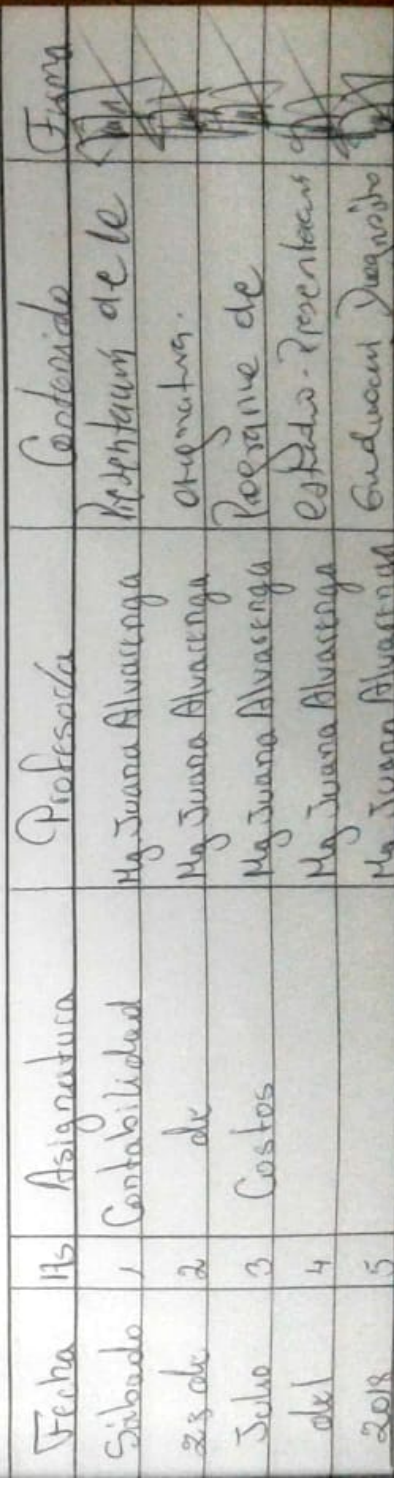 Fecha Hs Asignatura Profesor/a Contenido Firma
Sábado 1 Contabilidad Mg Juana Alvarenga Presentación de la
de 2 de Mg Juana Alvarenga asignatura.
Julio 3 Costos Mg Juana Alvarenga Programa de
del 4 Mg Juana Alvarenga estudio - Presentación
2018 5 Mg Juana Alvarenga Evaluación Diagnóstico